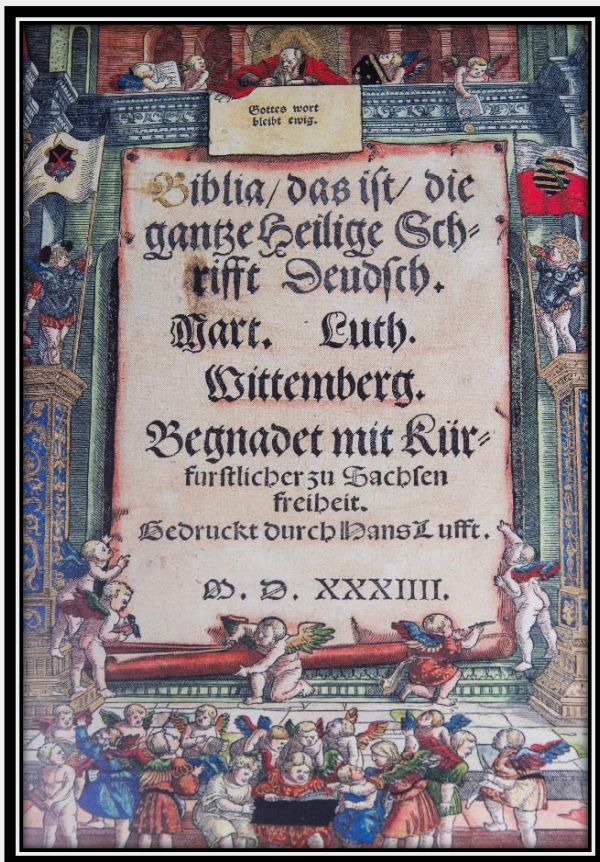 Gottes wort
bleibt ewig.
Biblia/ das ist/ die
gantze Heilige Sch=
rifft Deudsch.
Mart. Luth.
Wittemberg.
Begnadet mit Kür=
furstlicher zu Sachsen
freiheit.
Gedruckt durch Hans Lufft.
M. D. XXXIIII.